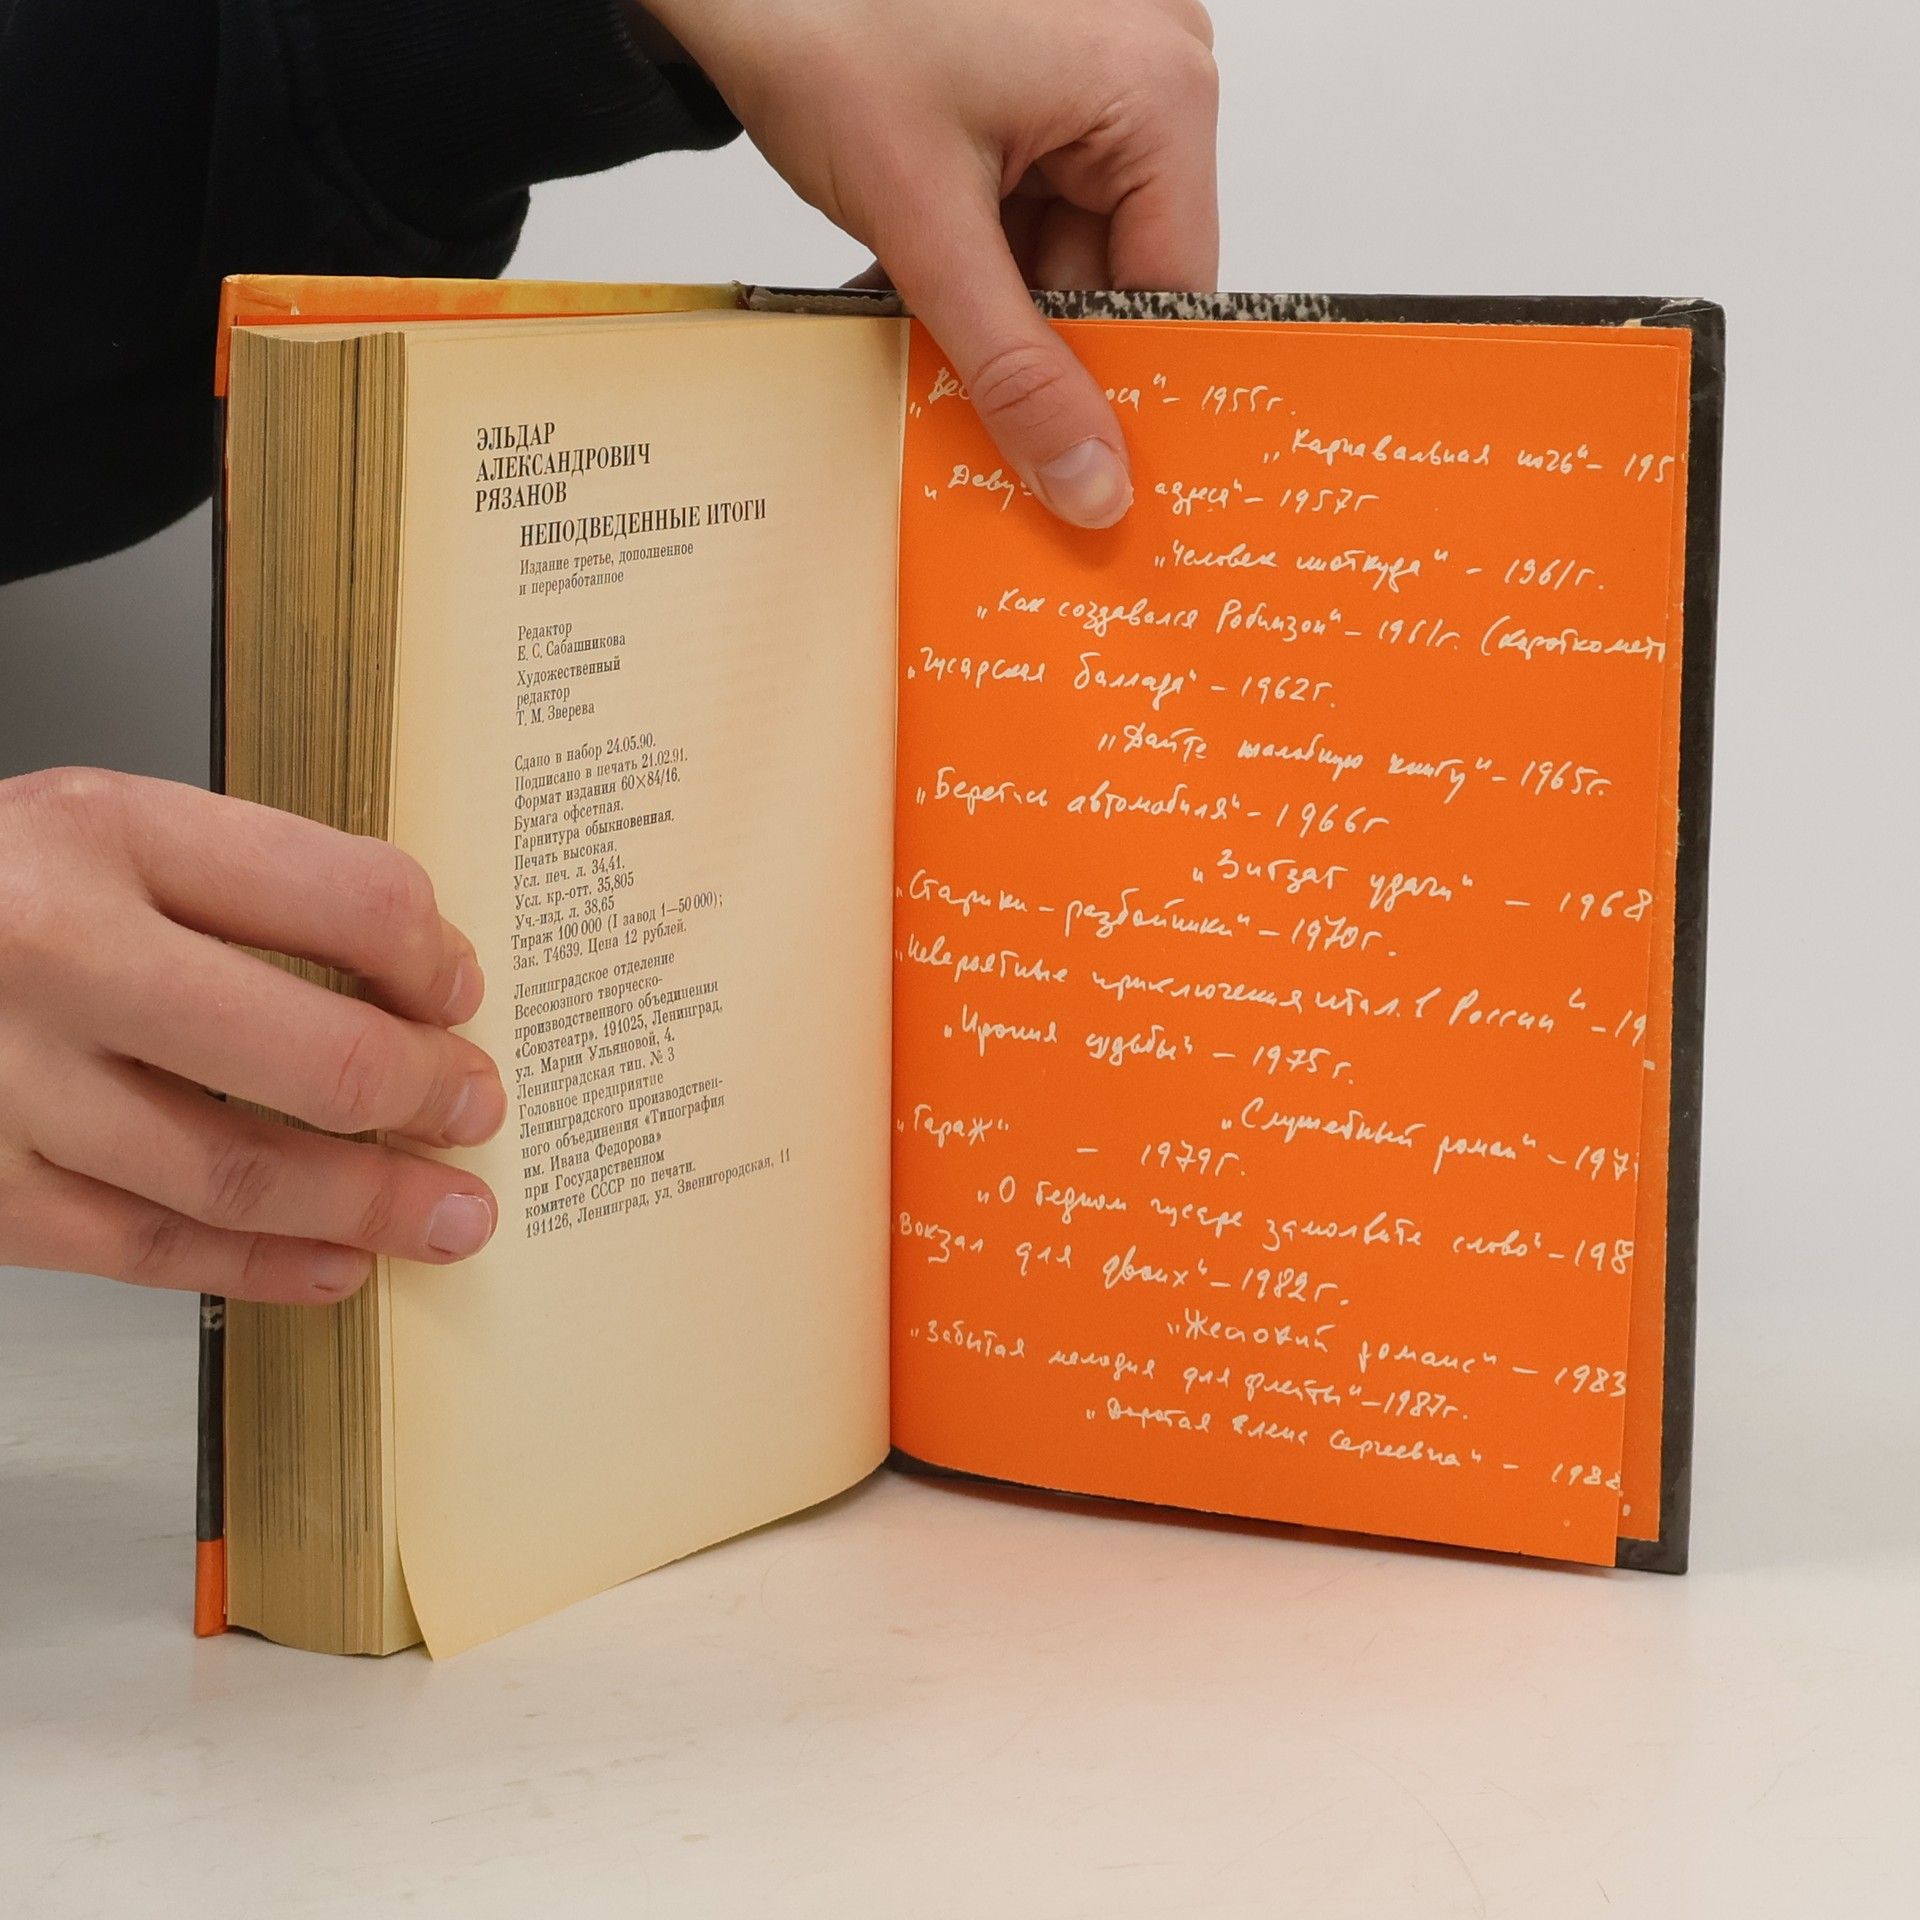 ЭЛЬДАР
АЛЕКСАНДРОВИЧ
РЯЗАНОВ
НЕПОДВЕДЕННЫЕ ИТОГИ
Издание третье, дополненное
и переработанное
Редактор
Е. С. Сабашникова
Художественный
редактор
Т. М. Зверева
Сдано в набор 24.05.90.
Подписано в печать 21.02.91.
Формат издания 60×84/16.
Бумага офсетная.
Гарнитура обыкновенная.
Печать высокая.
Усл. печ. л. 34,41.
Усл. кр.-отт. 35,805
Уч.-изд. л. 38,65
Тираж 100 000 (I завод 1—50 000);
Зак. Т4639. Цена 12 рублей.
Ленинградское отделение
Всесоюзного творческо-
производственного объединения
«Союзтеатр». 191025, Ленинград,
ул. Марии Ульяновой, 4.
Ленинградская тип. № 3
Головное предприятие
Ленинградского производствен-
ного объединения «Типография
им. Ивана Федорова»
при Государственном
комитете СССР по печати.
191126, Ленинград, ул. Звенигородская, 11
– 1955г.
„Карнавальная ночь“ – 195
адреса“ – 1957г
„Человек ниоткуда“ – 1961г.
„Как создавался Робинзон“ – 1961г. (короткомет
„Гусарская баллада“ – 1962г.
„Дайте жалобную книгу“ – 1965г.
„Берегись автомобиля“ – 1966г
„Зигзаг удачи“ – 1968
„Старики-разбойники“ – 1970г.
„Невероятные приключения итал. в России“ – 19
„Ирония судьбы“ – 1975г.
„Служебный роман“ – 197
„Гараж“ – 1979г.
„О бедном гусаре замолвите слово“ – 198
Вокзал для двоих“ – 1982г.
„Жестокий романс“ – 1983
„Забытая мелодия для флейты“ – 1987г.
„Дорогая Елена Сергеевна“ – 1988